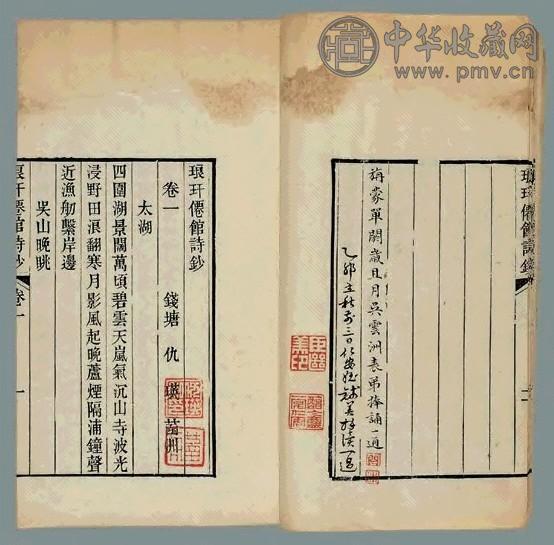 中华收藏网
www.pmv.cn
琅玕僊館詩鈔
旃蒙單閼歲且月吳雲洲表弟捧誦一過
乙卯立秋前三日仁安 美拜讀一過
琅玕僊館詩鈔
卷一 錢塘 仇
太湖
四圍湖景闊萬頃碧雲天嵐氣沉山寺波光
浸野田浪翻寒月影風起晚蘆煙隔浦鐘聲
近漁舠繫岸邊
吳山晚眺
琅玕僊館詩鈔 卷一 一